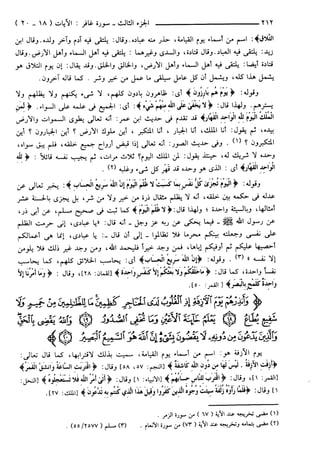 ٢١٢ الجزء الثالث - سورة غافر : الآيات (١٨ - ٢٠)
التَّلَاقِ﴾: اسم من أسماء يوم القيامة، حذر منه عباده. وقال: يلتقي فيه آدم وآخر ولده. وقال ابن
زيد: يلتقي فيه العباد. وقال قتادة، والسدي وغيرهما : يلتقي فيه أهل السماء وأهل الأرض. وقال
قتادة أيضا: يلتقي فيه أهل السماء وأهل الأرض، والخالق والخلق. وقد يقال: إن يوم التلاق هو
يشمل هذا كله، ويشمل أن كل عامل سيلقى ما عمل من خير وشر . كما قاله آخرون.
وقوله: ﴿يَوْمَ هُم بَارِزُونَ﴾ أي: ظاهرون بادون كلهم، لا شيء يكنهم ولا يظلهم ولا
يسترهم. ولهذا قال: ﴿لَا يَخْفَى عَلَى اللَّهِ مِنْهُمْ شَيْءٌ﴾ أي: الجميع في علمه على السواء. ﴿لِّمَنِ
الْمُلْكُ الْيَوْمَ لِلَّهِ الْوَاحِدِ الْقَهَّارِ﴾ قد تقدم في حديث ابن عمر: أنه تعالى يطوي السموات والأرض
بيده، ثم يقول: أنا الملك، أنا الجبار ، أنا المتكبر ، أين ملوك الأرض ؟ أين الجبارون ؟ أين
المتكبرون ؟ (١) . وفي حديث الصور: أنه تعالى إذا قبض أرواح جميع خلقه، فلم يبق سواه،
وحده لا شريك له، حينئذ يقول: لمن الملك اليوم؟ ثلاث مرات، ثم يجيب نفسه قائلاً : ﴿لِلَّهِ
الْوَاحِدِ الْقَهَّارِ﴾ أي : الذي هو وحده قد قهر كل شيء وغلبه (٢).
وقوله: ﴿الْيَوْمَ تُجْزَى كُلُّ نَفْسٍ بِمَا كَسَبَتْ لَا ظُلْمَ الْيَوْمَ إِنَّ اللَّهَ سَرِيعُ الْحِسَابِ﴾: يخبر تعالى عن
عدله في حكمه بين خلقه، أنه لا يظلم مثقال ذرة من خير ولا من شر، بل يجزي بالحسنة عشر
أمثالها، وبالسيئة واحدة ؛ ولهذا قال: ﴿لَا ظُلْمَ الْيَوْمَ﴾ كما ثبت في صحيح مسلم، عن أبي ذر،
عن رسول الله ﷺ - فيما يحكى عن ربه عز وجل - أنه قال: «يا عبادي، إني حرمت الظلم
على نفسي وجعلته بينكم محرما فلا تظالموا - إلى أن قال -: يا عبادي، إنما هي أعمالكم
أحصيها عليكم ثم أوفيكم إياها، فمن وجد خيراً فليحمد الله، ومن وجد غير ذلك فلا يلومن
إلا نفسه » (٣) . وقوله: ﴿إِنَّ اللَّهَ سَرِيعُ الْحِسَابِ﴾ أي: يحاسب الخلائق كلهم، كما يحاسب
نفساً واحدة، كما قال: ﴿مَّا خَلْقُكُمْ وَلَا بَعْثُكُمْ إِلَّا كَنَفْسٍ وَاحِدَةٍ﴾ [لقمان: ٢٨]، وقال: ﴿وَمَا أَمْرُنَا إِلَّا
وَاحِدَةٌ كَلَمْحٍ بِالْبَصَرِ﴾ [القمر: ٥٠].
﴿وَأَنذِرْهُمْ يَوْمَ الْآزِفَةِ إِذِ الْقُلُوبُ لَدَى الْحَنَاجِرِ كَاظِمِينَ مَا لِلظَّالِمِينَ مِنْ حَمِيمٍ وَلَا
شَفِيعٍ يُطَاعُ ١٨ يَعْلَمُ خَائِنَةَ الْأَعْيُنِ وَمَا تُخْفِي الصُّدُورُ ١٩ وَاللَّهُ يَقْضِي بِالْحَقِّ
وَالَّذِينَ يَدْعُونَ مِن دُونِهِ لَا يَقْضُونَ بِشَيْءٍ إِنَّ اللَّهَ هُوَ السَّمِيعُ الْبَصِيرُ ٢٠﴾
يوم الآزفة هو: اسم من أسماء يوم القيامة، سميت بذلك لاقترابها، كما قال تعالى:
﴿أَزِفَتِ الْآزِفَةُ . لَيْسَ لَهَا مِن دُونِ اللَّهِ كَاشِفَةٌ﴾ [النجم: ٥٧، ٥٨] وقال: ﴿اقْتَرَبَتِ السَّاعَةُ وَانشَقَّ الْقَمَرُ﴾
[القمر: ١]، وقال: ﴿اقْتَرَبَ لِلنَّاسِ حِسَابُهُمْ﴾ [الأنبياء: ١] وقال: ﴿أَتَى أَمْرُ اللَّهِ فَلَا تَسْتَعْجِلُوهُ﴾ [النحل:
١] وقال: ﴿فَلَمَّا رَأَوْهُ زُلْفَةً سِيئَتْ وُجُوهُ الَّذِينَ كَفَرُوا وَقِيلَ هَذَا الَّذِي كُنتُم بِهِ تَدَّعُونَ﴾ [الملك: ٢٧].
(١) مضى تخريجه عند الآية ( ٦٧ ) من سورة الزمر .
(٢) مضى بتمامه وتخريجه عند الآية (٧٣) من سورة الأنعام . (٣) مسلم (٥٥/٢٥٧٧).